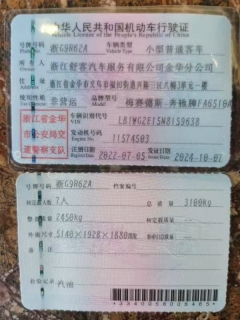 中华人民共和国机动车行驶证
Vehicle License of the People's Republic of China
号牌号码 浙G9R62A 车辆类型 小型普通客车
所有人 浙江舒客汽车服务有限公司金华分公司
使用性质 非营运 品牌型号 梅赛德斯-奔驰牌FA6510A
Model
浙江省金华
市公安局交
通警察支队
车辆识别代号
VIN
发动机号码 11574503
Engine No.
注册日期 2022-07-05 发证日期 2024-10-07
号牌号码 浙G9R62A 档案编号
核定载人数 7人 总质量 3100kg
整备质量 2450kg 核定载质量
外廓尺寸 5140×1928×1880mm 准牵引总质量
备注
检验记录 汽油